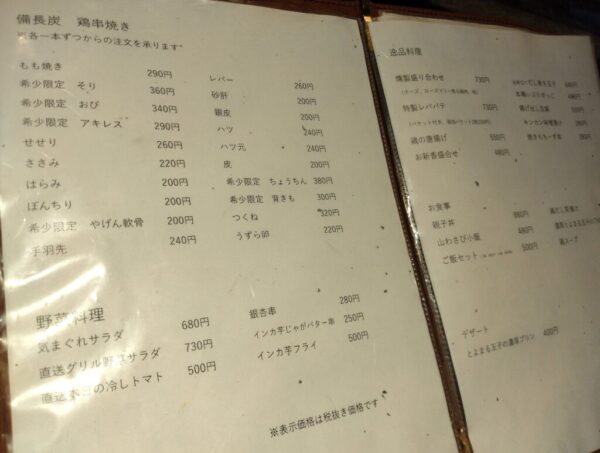 備長炭　鶏串焼き
※各一本ずつからの注文を承ります
もも焼き 290円
希少限定　そり 360円
希少限定　おび 340円
希少限定　アキレス 290円
せせり 260円
ささみ 220円
はらみ 200円
ぼんちり 200円
希少限定　やげん軟骨 200円
手羽先 240円
レバー 260円
砂肝 200円
銀皮 200円
ハツ 240円
ハツ元 240円
皮 200円
希少限定　ちょうちん 380円
希少限定　背きも 300円
つくね 320円
うずら卵 220円
野菜料理
気まぐれサラダ 680円
直送グリル野菜サラダ 730円
直送本日の冷しトマト 500円
銀杏串 280円
インカ芋じゃがバター串 250円
インカ芋フライ 500円
※表示価格は税抜き価格です
逸品料理
燻製盛り合わせ 730円
特製レバパテ 730円
鶏の唐揚げ 550円
お新香盛合せ 480円
揚げ出し豆腐 500円
お食事
親子丼 880円
山わさび小飯 480円
ご飯セット 500円
鶏スープ
デザート
とよまる玉子の濃厚プリン 400円